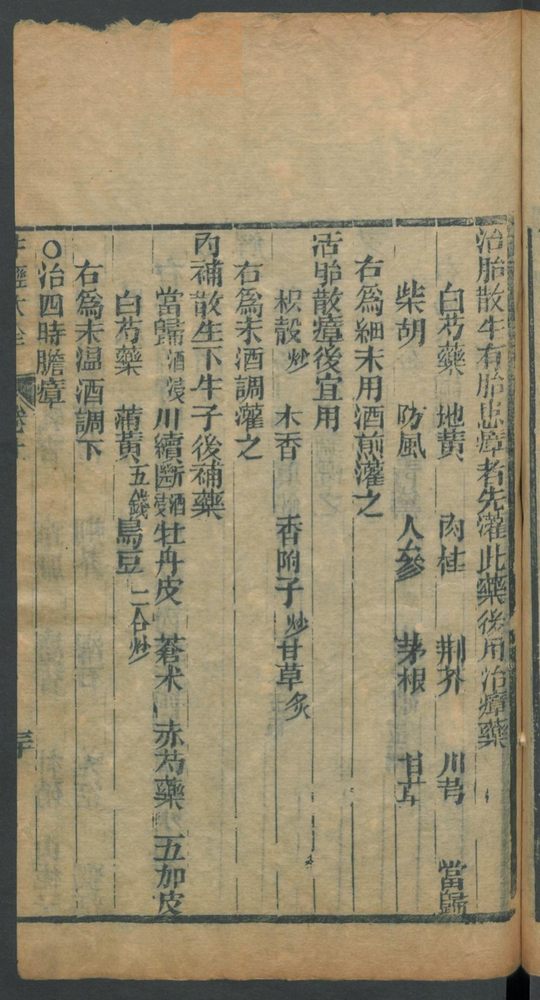 治胎散牛有胎患瘴者先灌此藥後用治瘴藥
白芍藥 地黃 肉桂 荆芥 川芎 當歸
柴胡 防風 人參 茅根 甘草
右爲細末用酒煎灌之
活胎散瘴後宜用
枳殼炒 木香 香附子炒 甘草炙
右爲末酒調灌之
內補散生下牛子後補藥
當歸酒浸 川續斷酒浸 牡丹皮 蒼术 赤芍藥 五加皮
白芍藥 蒲黃五錢 烏豆二合炒
右爲末溫酒調下
○治四時膽瘴
牛經大全 卷下